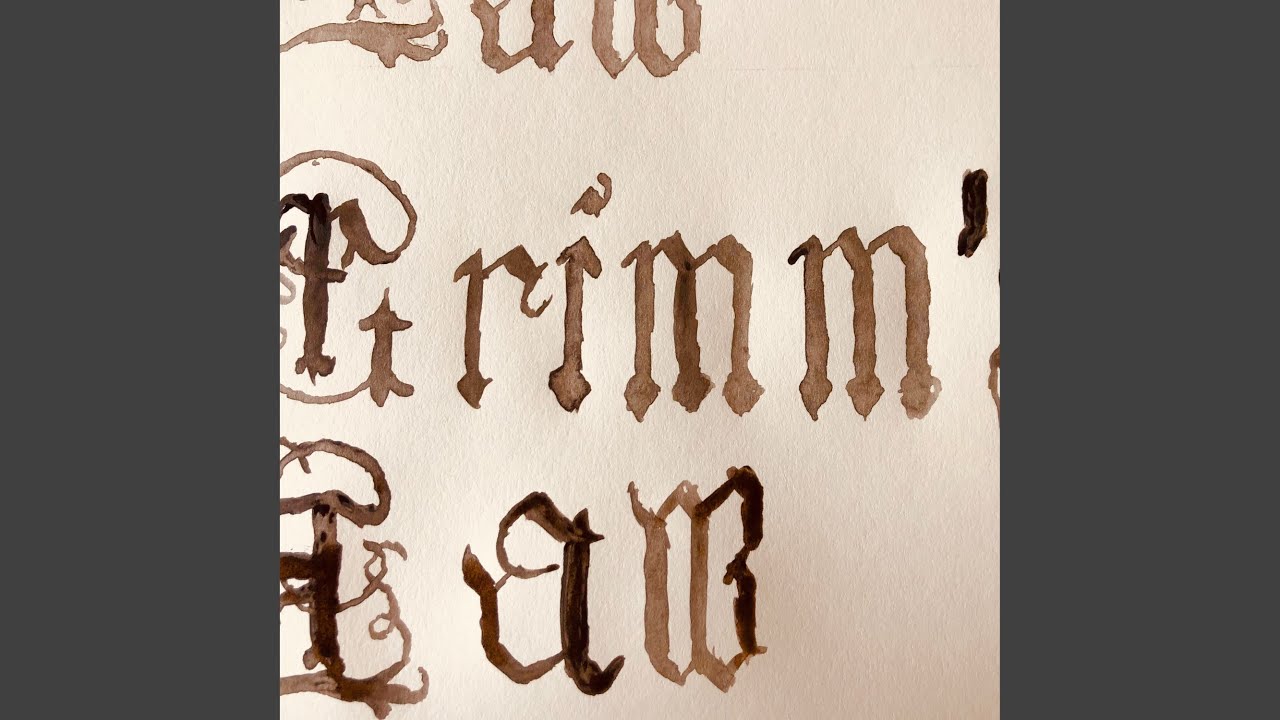 Law
Grimm's
Law